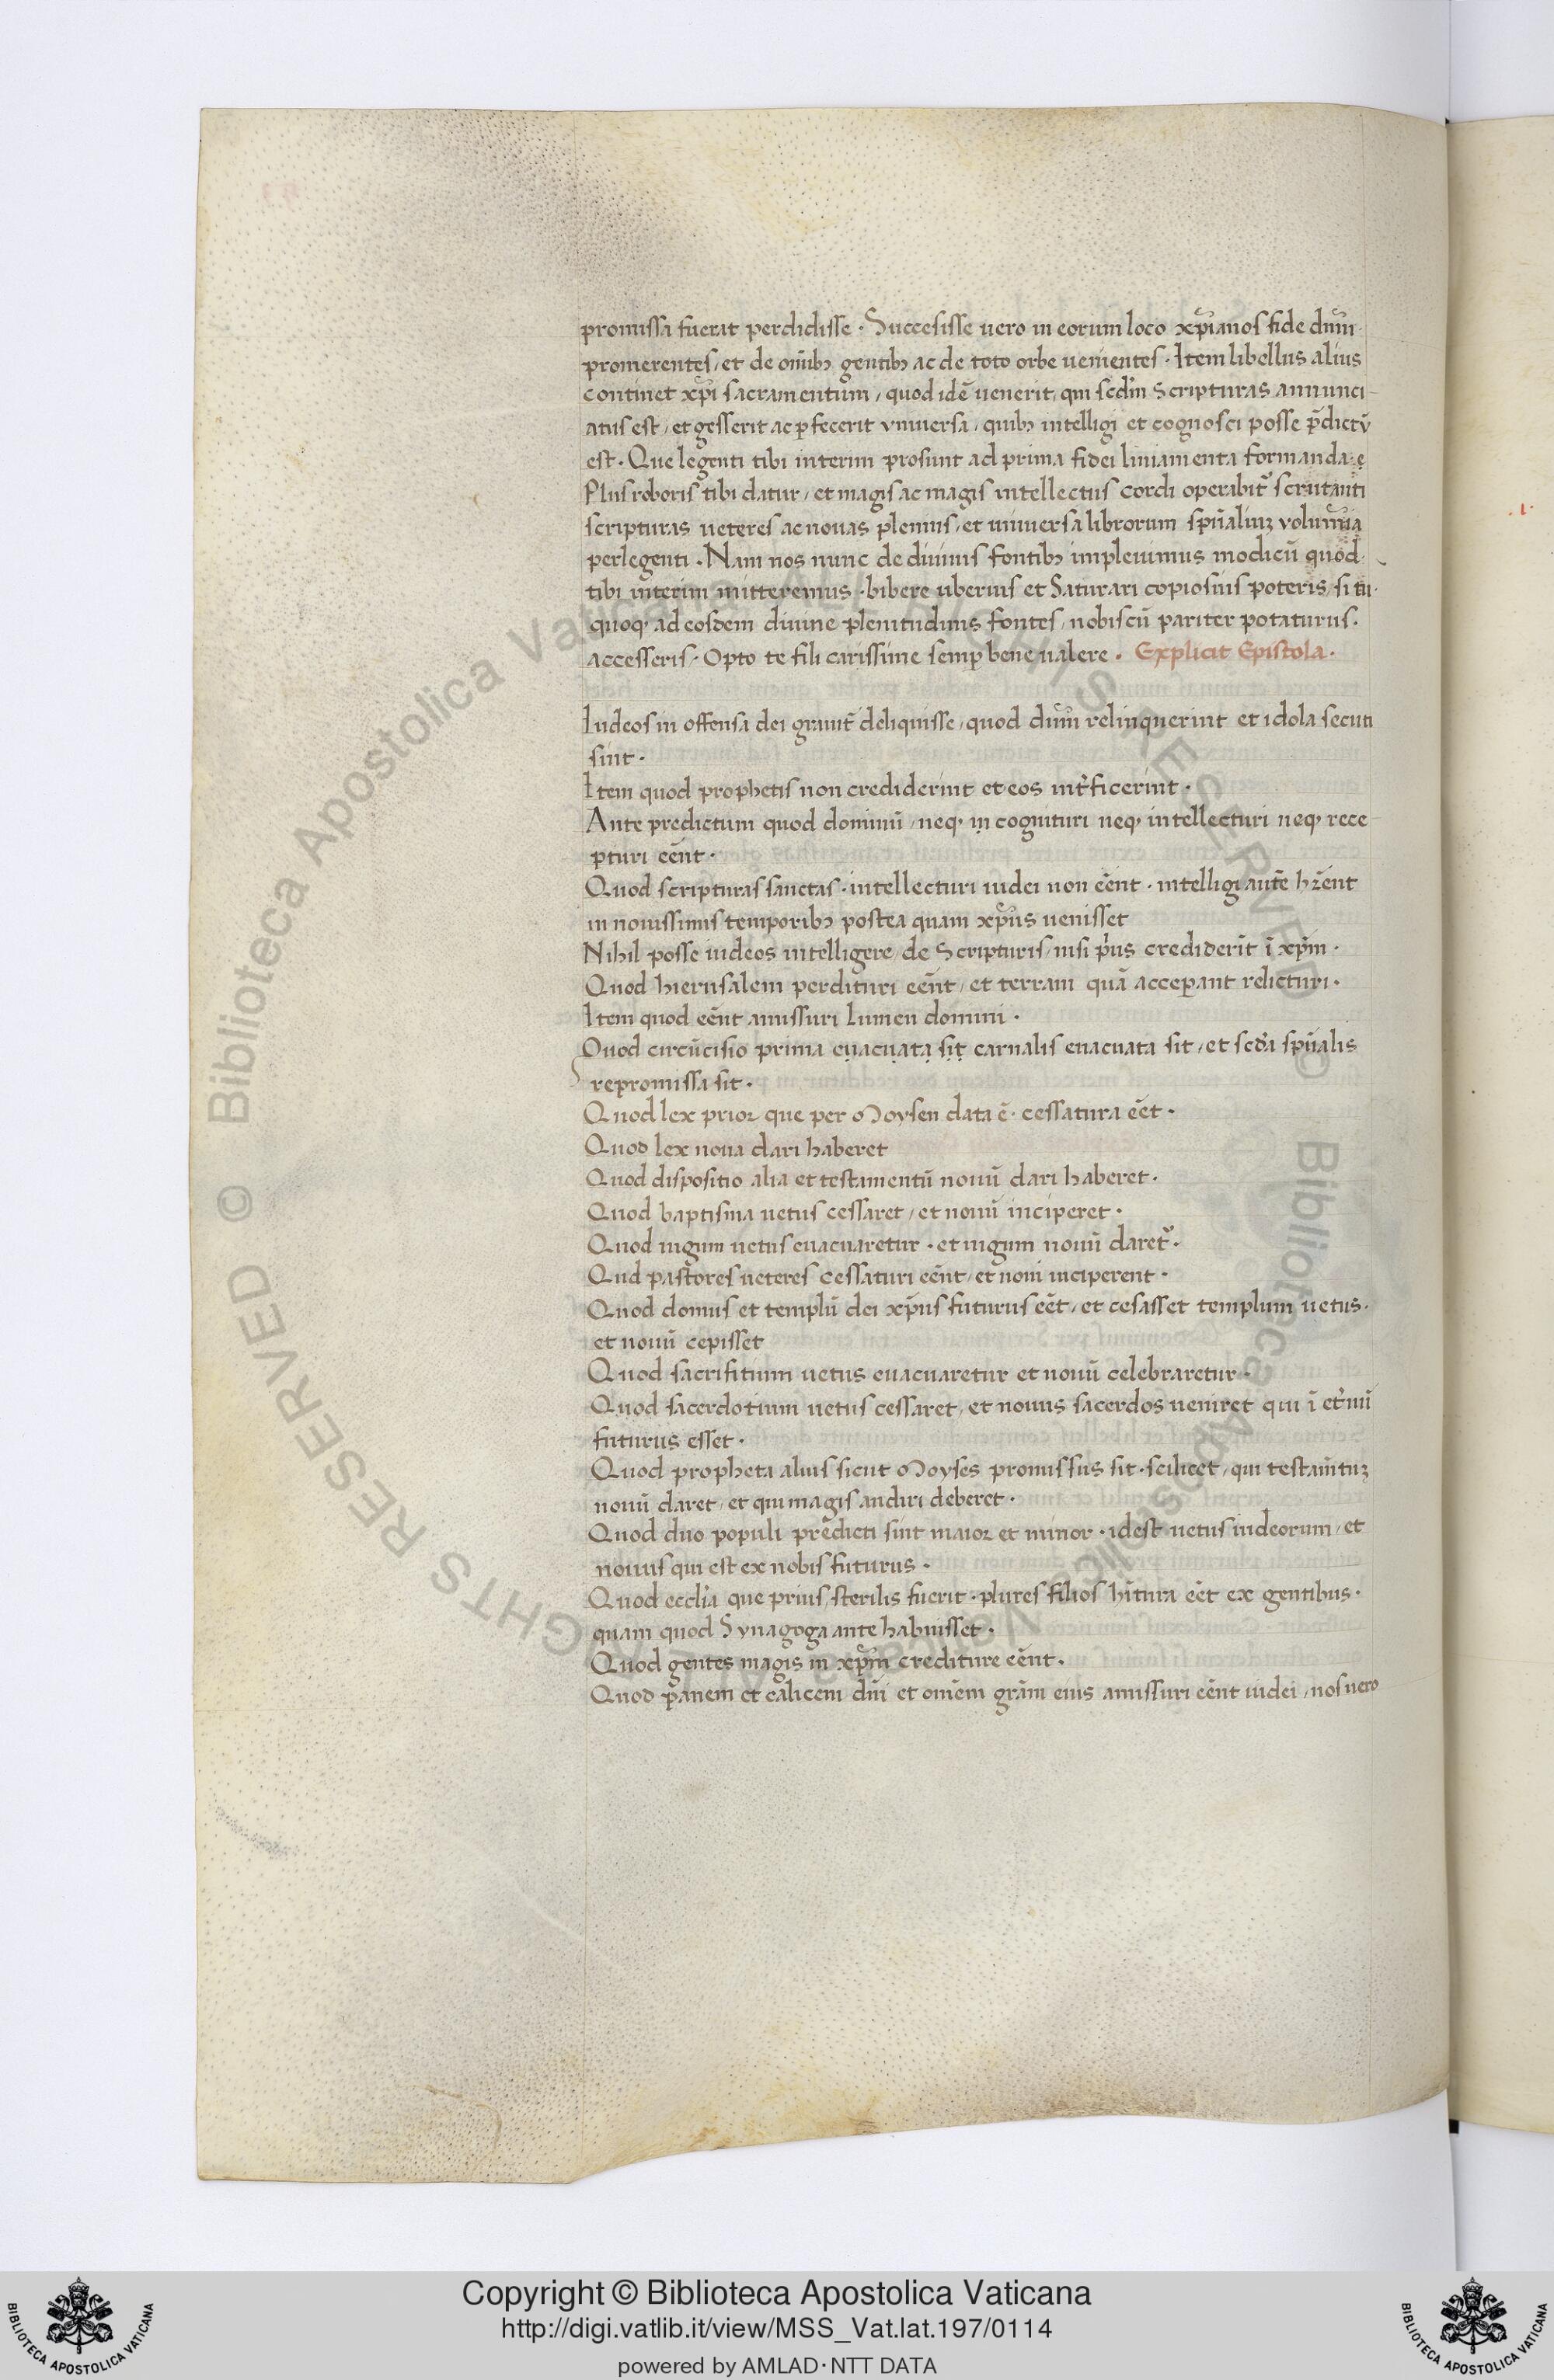 promissa fuerat perdidisse · Successisse uero in eorum loco xp̄ianos fide dn̄m
promerentes / et de om̄ibꝫ gentibꝫ ac de toto orbe uenientes · Item libellus alius
continet xp̄i sacramentum / quod idē uenerit / qui scd̄m Scripturas annunci-
atus est / et gesserit ac ꝑfecerit vniuersa / quibꝫ intelligi et cognosci posse p̄dictū
est · Que legenti tibi interim prosunt ad prima fidei liniamenta formanda
Plus roboris tibi datur / et magis ac magis intellectus cordi operabit᷒ scrutanti
scripturas ueteres ac nouas plenius / et uniuersa librorum sp̄ualiuꝫ volumina
perlegenti · Nam nos nunc de diuinis fontibꝫ impleuimus modicū quod
tibi interim mitteremus · bibere uberius et Saturari copiosius poteris / si tu
quoqꝫ ad eosdem diuine plenitudinis fontes / nobiscū pariter potaturus ·
accesseris · Opto te fili carissime semꝑ bene ualere · Explicit Epistola ·
Iudeos in offensa dei grauit̄ deliquisse / quod dn̄m relinquerint et idola secuti
sint ·
Item quod prophetis non crediderint et eos int̄ficerint ·
Ante predictum quod dominū / neqꝫ in cognituri neqꝫ intellecturi neqꝫ rece-
pturi eēnt ·
Quod scripturas sanctas · intellecturi iudei non eēnt · intelligi autē hr̄ent
in nouissimis temporibꝫ postea quam xp̄us uenisset
Nihil posse iudeos intelligere / de Scripturis / nisi p̄us crediderīt ī xp̄m ·
Quod hierusalem perdituri eēnt / et terram quā acceꝑant relicturi ·
Item quod eēnt amissuri lumen domini ·
Quod circūcisio prima euacuata sit carnalis euacuata sit / et scd̄a sp̄ualis
repromissa sit ·
Quod lex prior que per Moysen data ē · cessatura eēt ·
Quod lex noua dari haberet
Quod dispositio alia et testamentū nouū dari haberet ·
Quod baptisma uetus cessaret / et nouū inciperet ·
Quod iugum uetus euacuaretur · et iugum nouū daret᷒ ·
Qud pastores ueteres cessaturi eēnt / et noui inciperent ·
Quod domus et templū dei xp̄us futurus eēt / et cesasset templum uetus ·
et nouū cepisset
Quod sacrifitium uetus euacuaretur et nouū celebraretur ·
Quod sacerdotium uetus cessaret / et nouus sacerdos ueniret qui ī et̄nū
futurus esset ·
Quod propheta alius sicut Moyses promissus sit · scilicet / qui testam̄tuꝫ
nouū daret / et qui magis audiri deberet ·
Quod duo populi predicti sint maior et minor · idest uetus iudeorum / et
nouus qui est ex nobis futurus ·
Quod eccl̄ia que prius sterilis fuerit · plures filios hītura eēt ex gentibus ·
quam quod Synagoga ante habuisset ·
Quod gentes magis in xp̄m crediture eēnt ·
Quod panem et calicem dn̄i et om̄em grām eius amissuri eēnt iudei / nos uero
· 1 ·
© Biblioteca Apostolica Vaticana ALL RIGHTS RESERVED
© Biblioteca Apostolica Vaticana ALL RIGHTS RESERVED
Copyright © Biblioteca Apostolica Vaticana
http://digi.vatlib.it/view/MSS_Vat.lat.197/0114
powered by AMLAD·NTT DATA
BIBLIOTECA APOSTOLICA VATICANA
BIBLIOTECA APOSTOLICA VATICANA